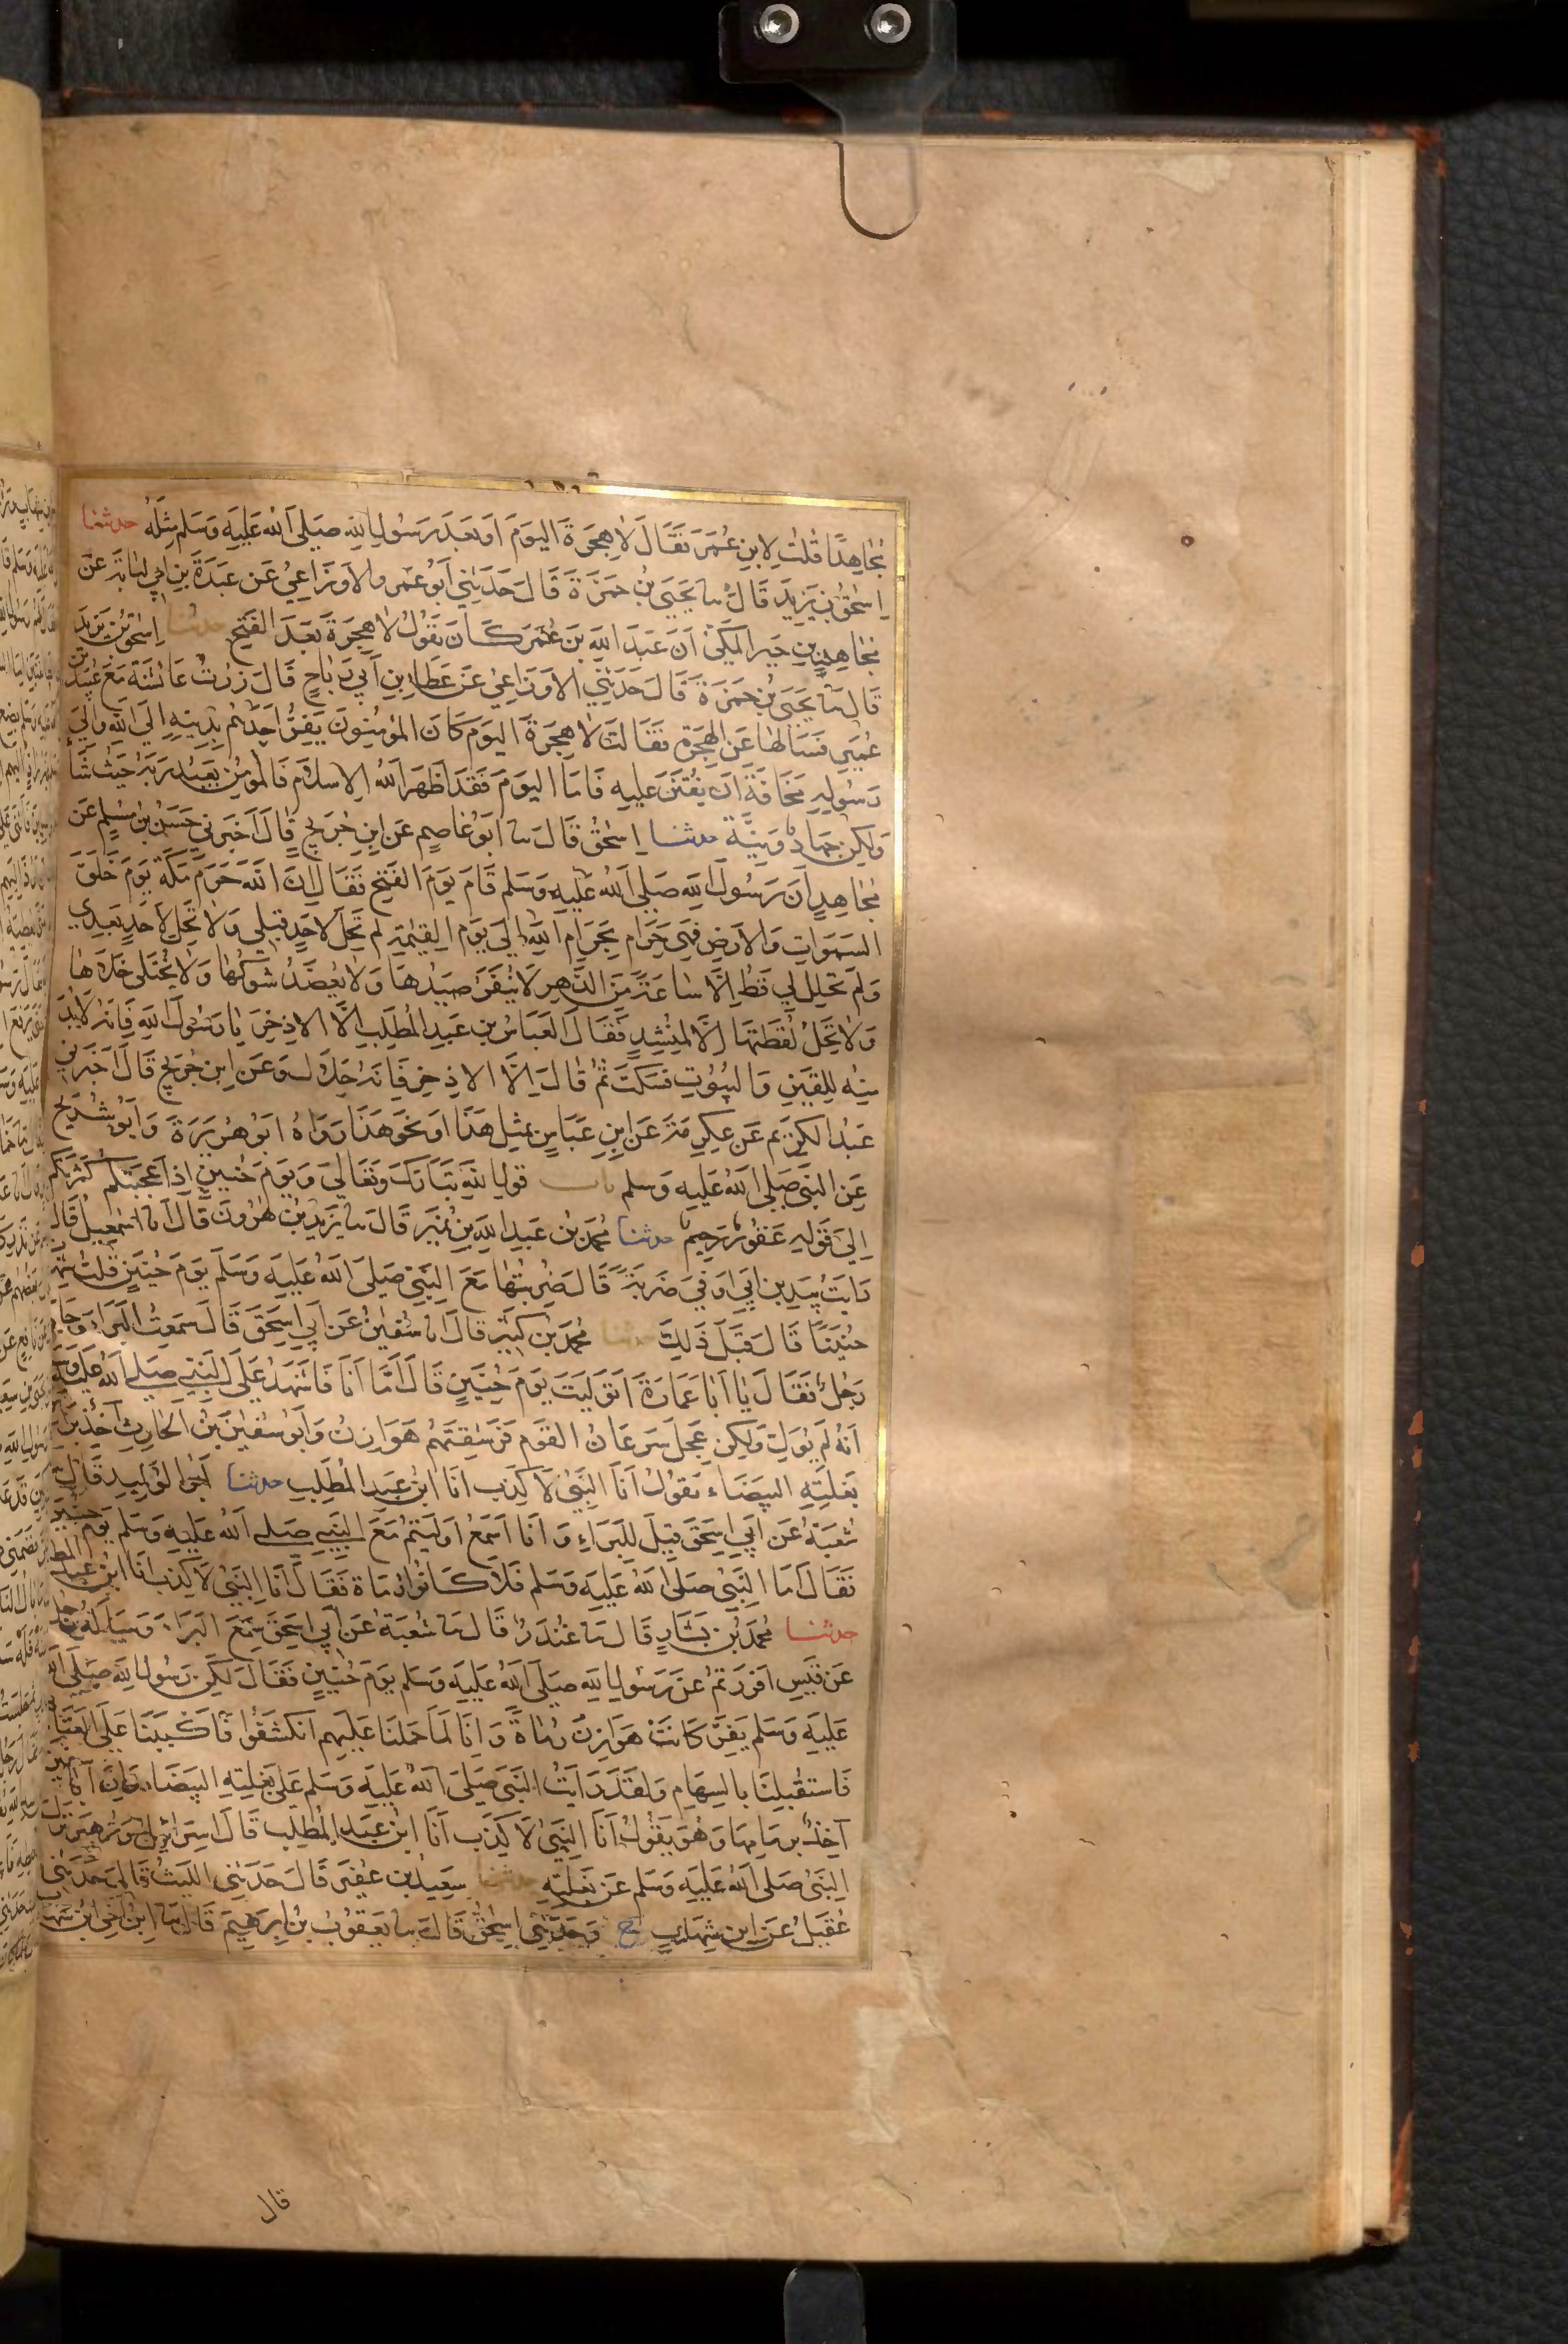 مجاهدًا قلت لابن عمر فقال لا هجرة اليوم او بعد رسول الله صلى الله عليه وسلم مثله حدثنا
اسحق بن يزيد قال سا يحيى بن حمزة قال حدثني ابو عمرو الاوزاعي عن عبدة بن ابي لبابة عن
مجاهد بن جبر المكي ان عبد الله بن عمر كان يقول لا هجرة بعد الفتح حدثنا اسحق بن يزيد
قال سا يحيى بن حمزة قال حدثني الاوزاعي عن عطا بن ابي رباح قال زرت عائشة مع عبيد بن
عمير فسالها عن الهجرة فقالت لا هجرة اليوم كان المؤمنون يفر احدهم بدينه الى الله والى
رسوله مخافة ان يفتن عليه فاما اليوم فقد اظهر الله الاسلام فالمومن يعبد ربه حيث شا
ولكن جهاد ونية حدثنا اسحق قال سا ابو عاصم عن ابن جريج قال اخبرني حسن بن مسلم عن
مجاهد ان رسول الله صلى الله عليه وسلم قام يوم الفتح فقال ان الله حرم مكة يوم خلق
السموات والارض فهي حرام بحرام الله الى يوم القيمة لم تحل لاحد قبلي ولا تحل لاحد بعدي
ولم تحلل لي قط الا ساعة من الدهر لا ينفر صيدها ولا يعضد شوكها ولا يختلى خلاها
ولا تحل لقطتها الا لمنشد فقال العباس بن عبد المطلب الا الاذخر يا رسول الله فانه لا بد
منه للقين والبيوت فسكت ثم قال الا الاذخر فانه حلال وعن ابن جريج قال اخبرني
عبد الكريم عن عكرمة عن ابن عباس بمثل هذا او نحو هذا رواه ابو هريرة وابو شريح
عن النبي صلى الله عليه وسلم باب قول الله تبارك وتعالى ويوم حنين اذ اعجبتكم كثرتكم
الى قوله غفور رحيم حدثنا محمد بن عبد الله بن نمير قال سا يزيد بن هرون قال انا اسمعيل قال
رايت بيد بن ابي اوفى ضربة قال ضربتها مع النبي صلى الله عليه وسلم يوم حنين قلت شهدت
حنينًا قال قبل ذلك حدثنا محمد بن كثير قال انا سفين عن ابي اسحق قال سمعت البراء وجاه
رجل فقال يا ابا عمارة اتوليت يوم حنين قال اما انا فاشهد على النبي صلى الله عليه وسلم
انه لم يول ولكن عجل سرعان القوم فرشقتهم هوازن وابو سفين بن الحارث آخذ براس
بغلته البيضاء يقول انا النبي لا كذب انا ابن عبد المطلب حدثنا ابو الوليد قال سا
شعبة عن ابي اسحق قيل للبراء وانا اسمع اوليتم مع النبي صلى الله عليه وسلم يوم حنين
فقال اما النبي صلى الله عليه وسلم فلا كانوا رماة فقال انا النبي لا كذب انا ابن عبد المطلب
حدثنا محمد بن بشار قال سا غندر قال سا شعبة عن ابي اسحق سمع البراء وساله رجل
من قيس افررتم عن رسول الله صلى الله عليه وسلم يوم حنين فقال لكن رسول الله صلى الله
عليه وسلم لم يفر كانت هوازن رماة وانا لما حملنا عليهم انكشفوا فاكببنا على الغنائم
فاستقبلنا بالسهام ولقد رايت النبي صلى الله عليه وسلم على بغلته البيضاء وان ابا سفين
آخذ بزمامها وهو يقول انا النبي لا كذب انا ابن عبد المطلب قال اسرائيل وزهير نزل
النبي صلى الله عليه وسلم عن بغلته حدثنا سعيد بن عفير قال حدثني الليث قال حدثني
عقيل عن ابن شهاب ح وحدثني اسحق قال سا يعقوب بن ابرهيم قال سا ابن اخي ابن شهاب
قال